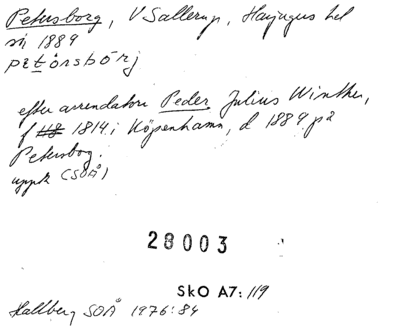 Petersborg, V Sallerup, Harjagers hd
sn 1889
petörsbörj
efter arrendatorn Peder Julius Winther,
f 1814 i Köpenhamn, d 1889 på
Petersborg.
uppk (SOÅ)
28003
SkO A7: 119
Hallberg SOÅ 1976: 84